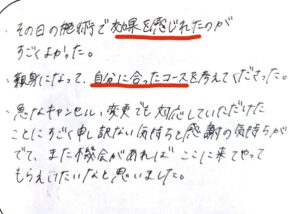 ・その日の施術で効果を感じれたのが
すごくよかった。
・親身になって、自分に合ったコースを考えてくださった。
・急なキャンセル、変更でも対応していただけた
ことにすごく申し訳ない気持ちと感謝の気持ちが
でて、また機会があればここに来てやって
もらえたいなと思いました。